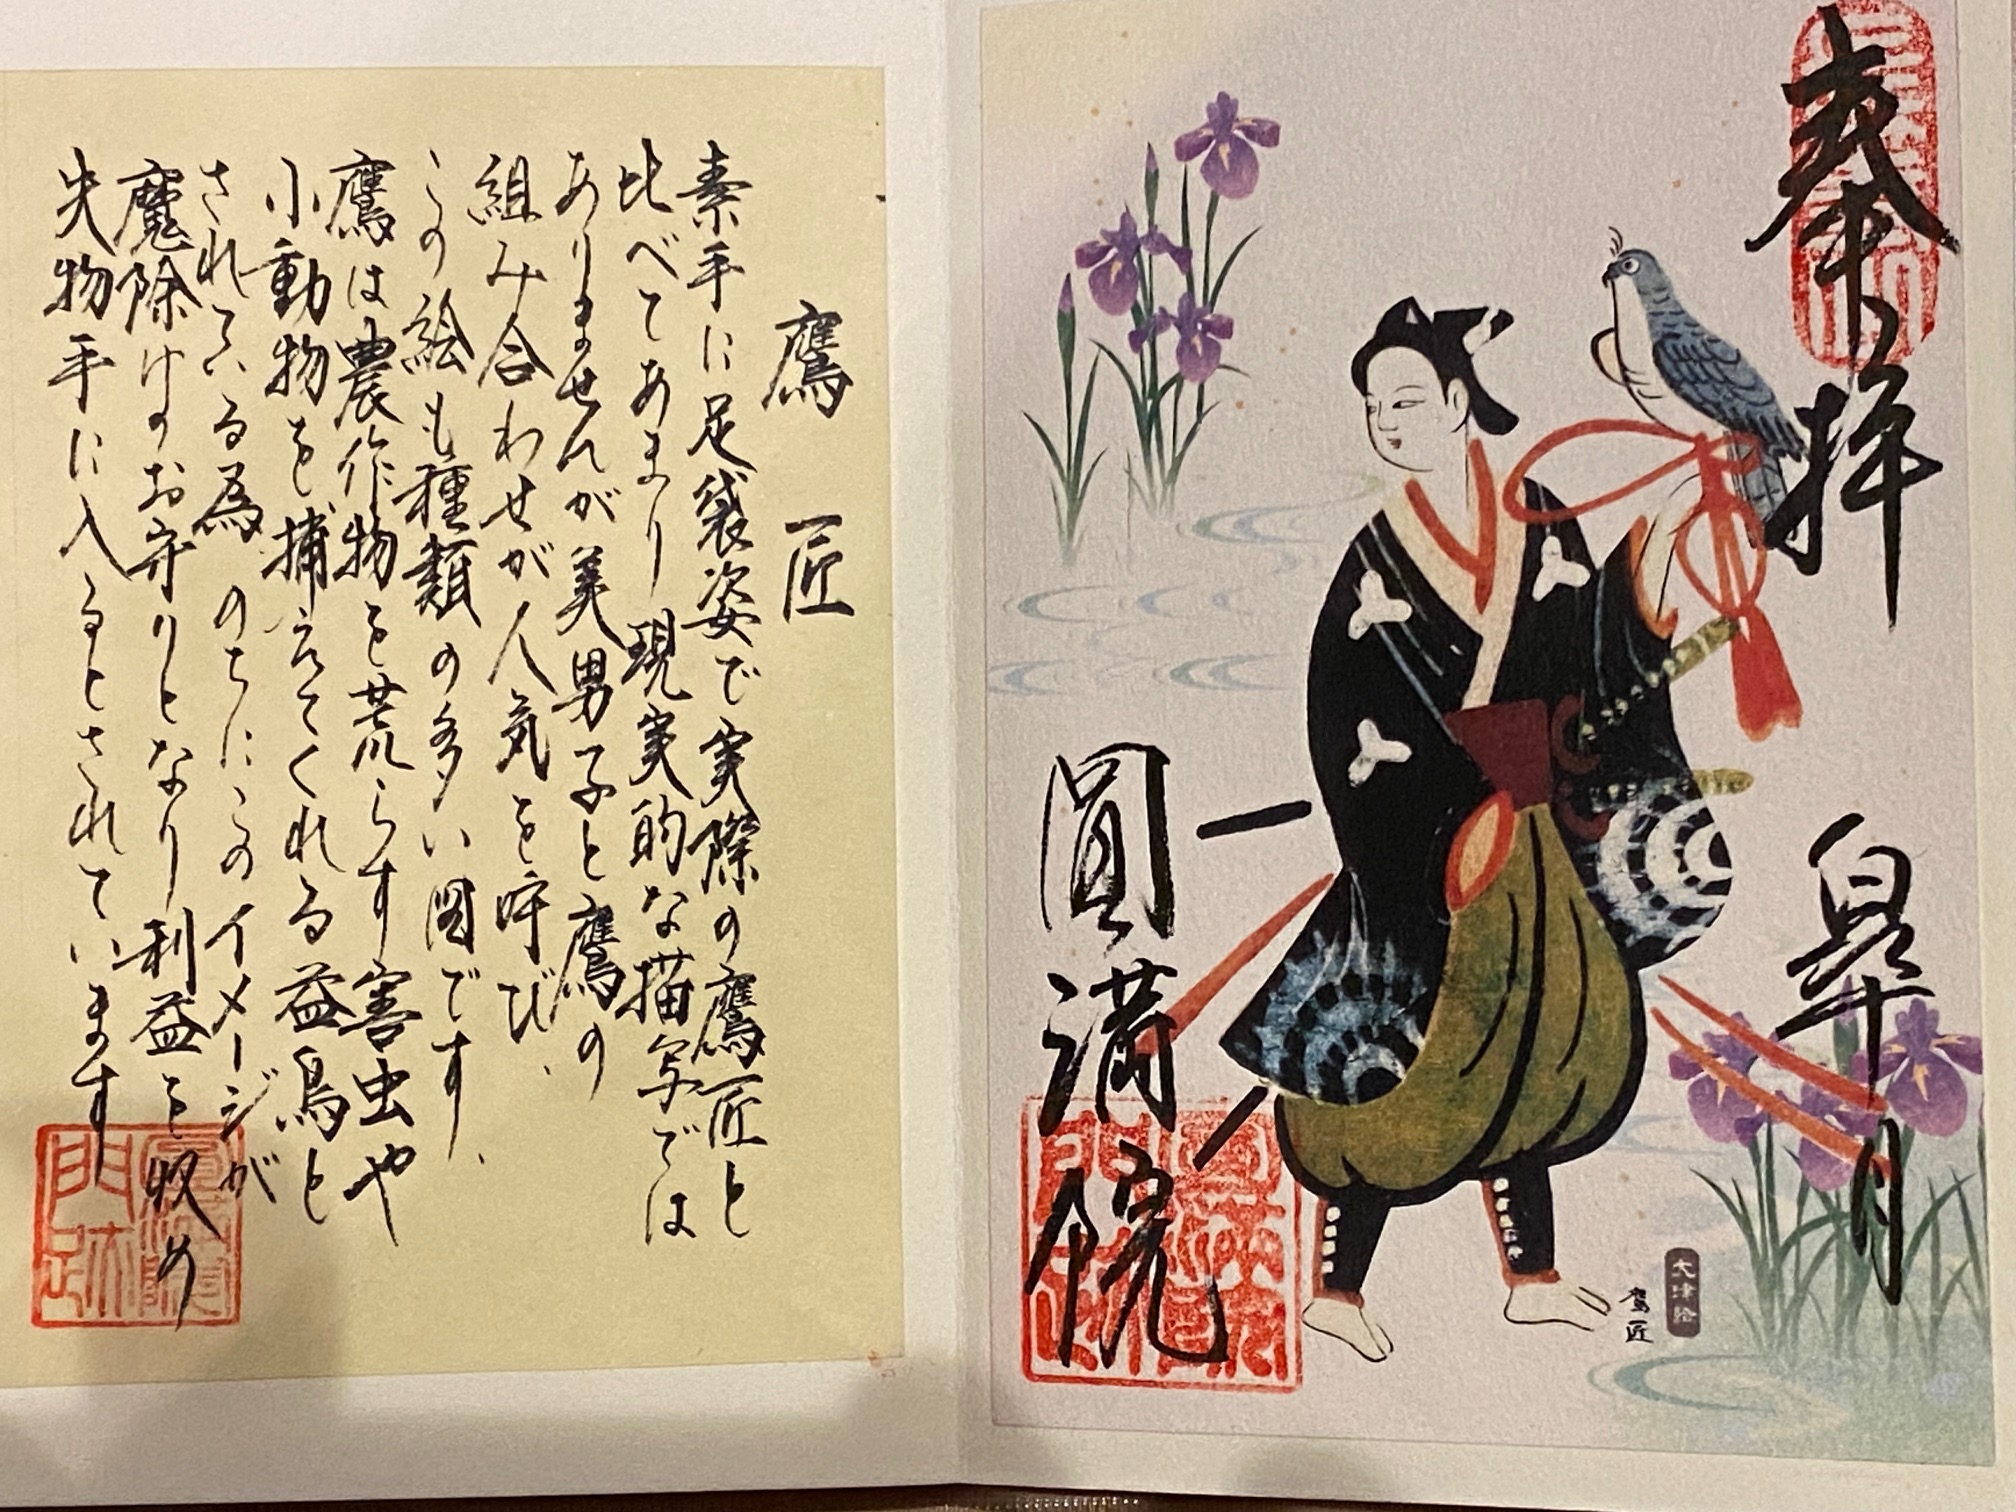 奉拝
皐月
圓満院
大津絵
鷹匠
鷹匠
素手に足袋姿で実際の鷹匠と
比べてあまり現実的な描写では
ありませんが美男子と鷹の
組み合わせが人気を呼び、
この絵も種類の多い図です。
鷹は農作物を荒らす害虫や
小動物を捕えてくれる益鳥と
されている為のちにこのイメージが
魔除けのお守りとなり利益を収め
失物手に入るとされています
門跡